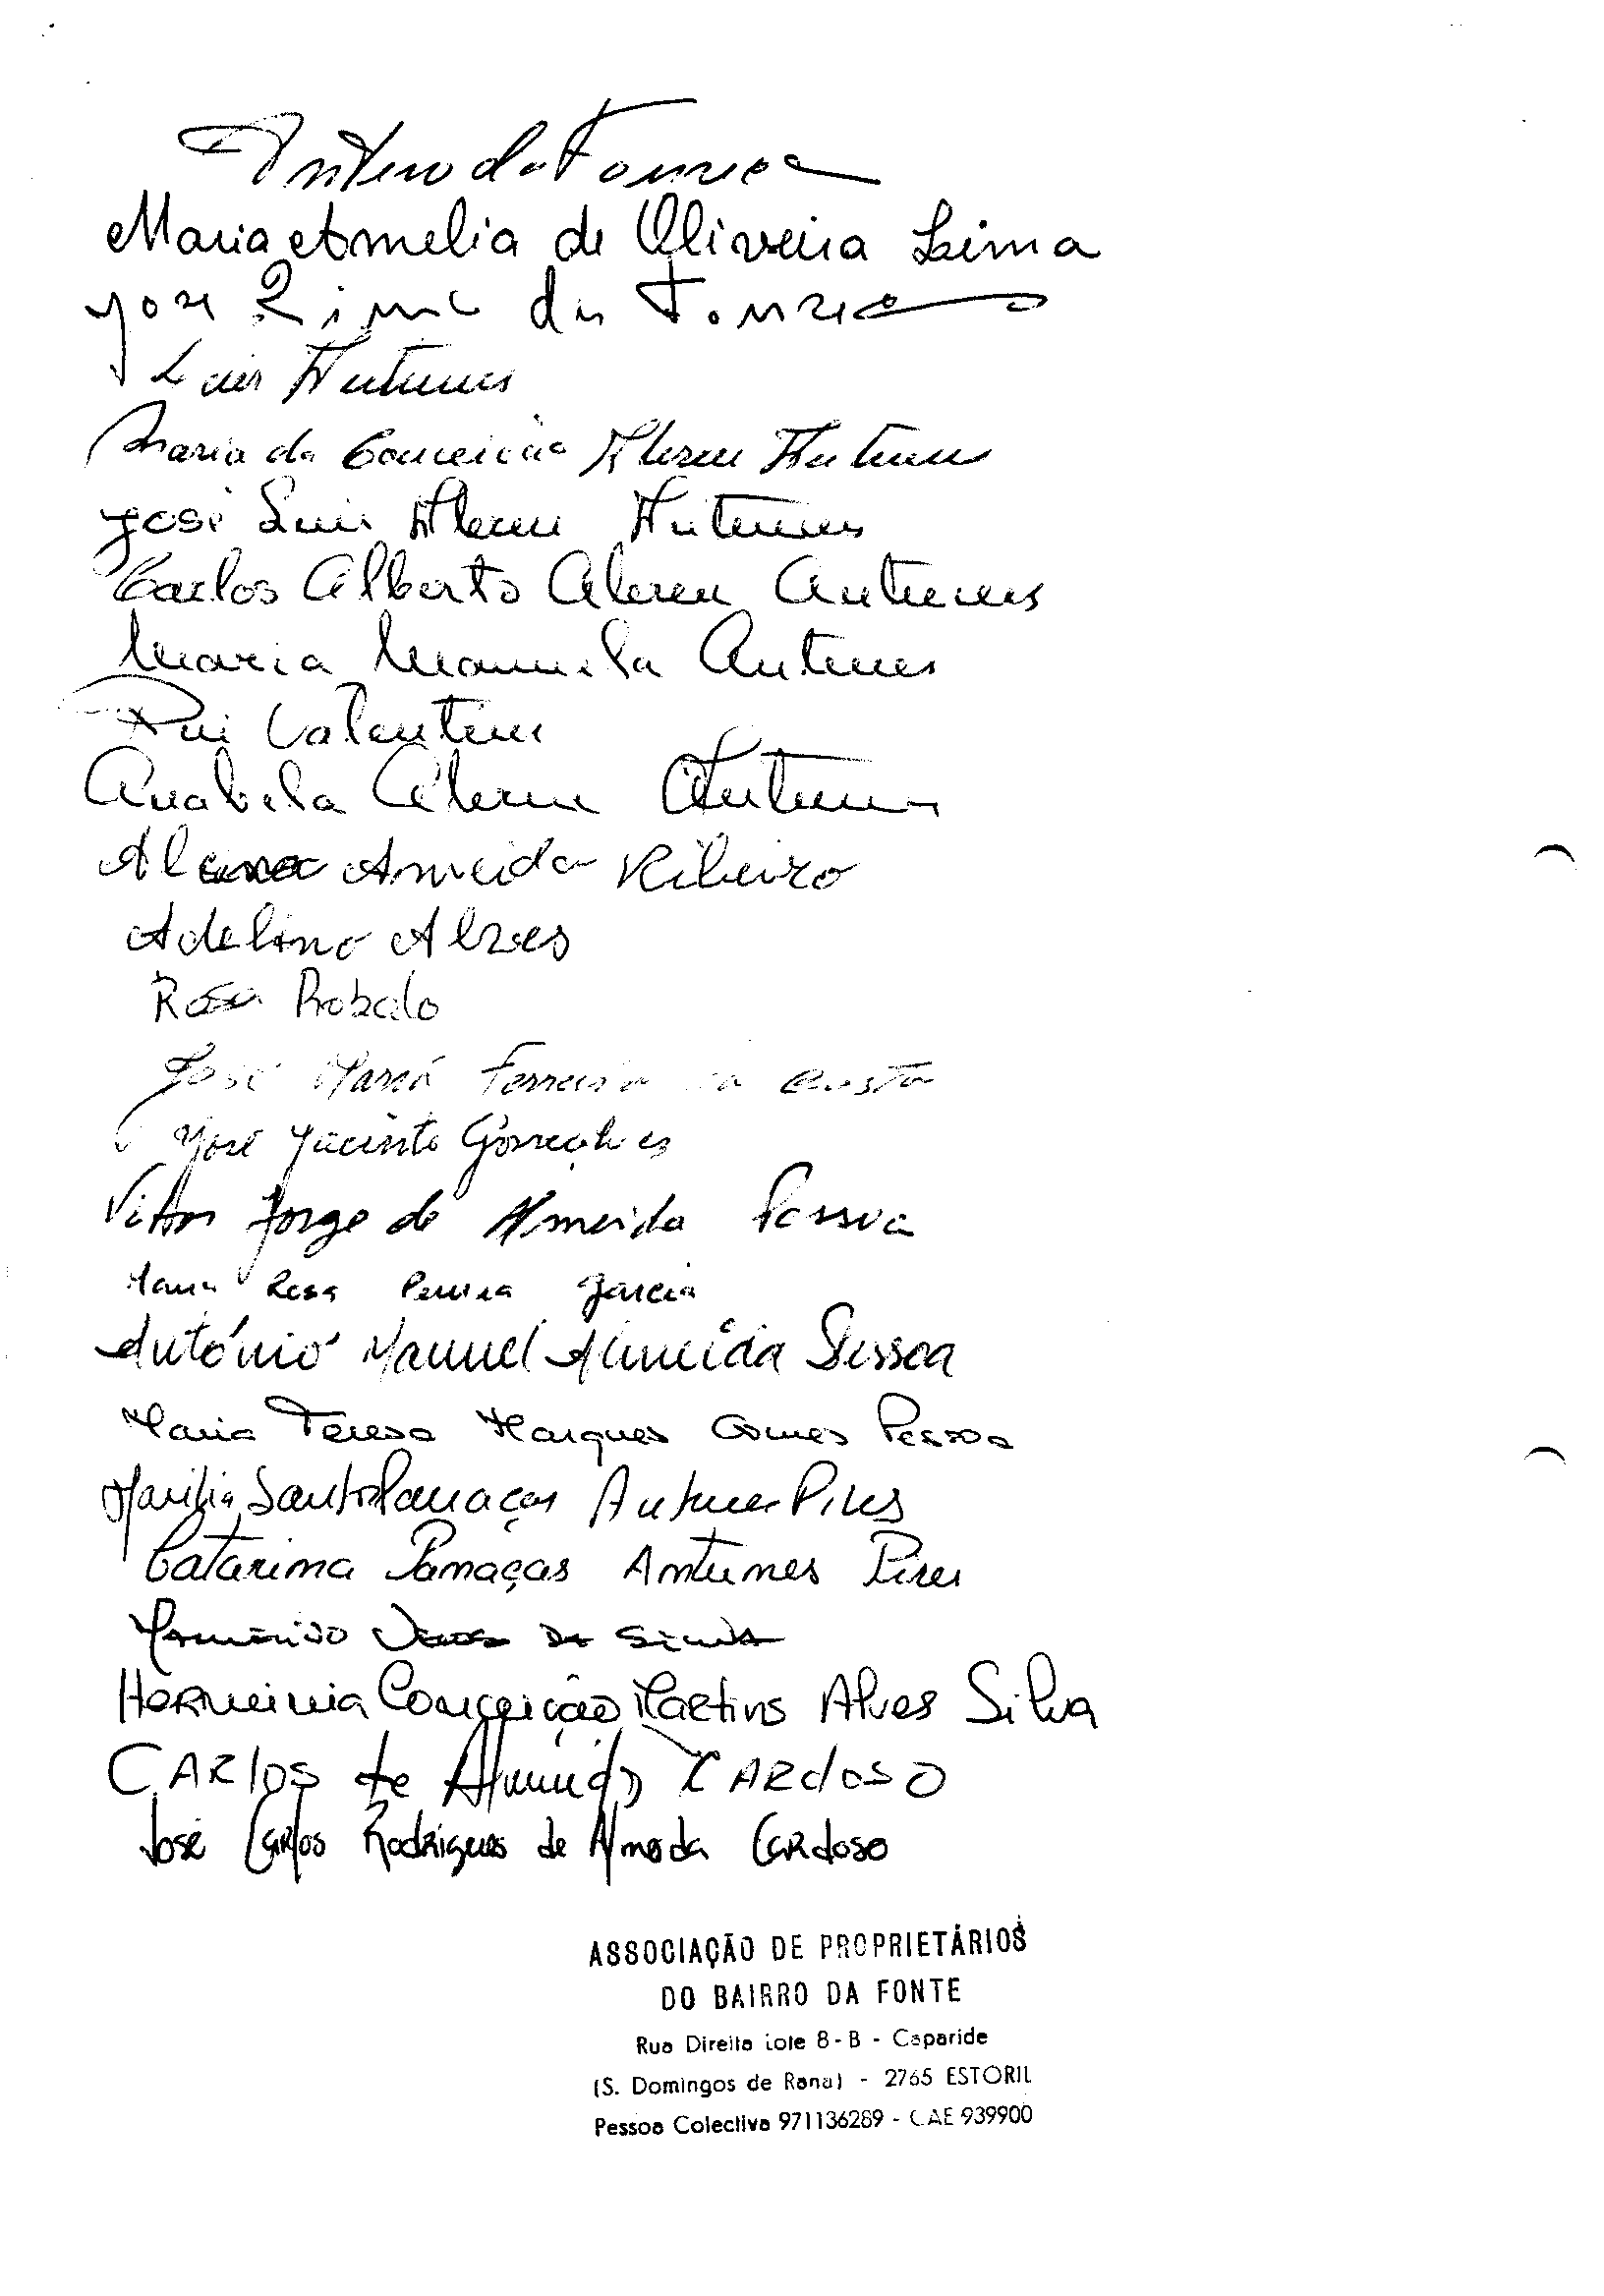 Antero da Fonseca
Maria Amelia de Oliveira Lima
José Lima da Fonseca
Luis Antunes
Maria da Conceição Abreu Antunes
José Luis Abreu Antunes
Carlos Alberto Abreu Antunes
Maria Manuela Antunes
Rui Valentim
Anabela Abreu Antunes
Almeida Ribeiro
Adelino Alves
Rosa Robalo
José Maria Ferreira da Costa
José Jacinto Gonçalves
Vitor Jorge de Almeida Pessoa
Maria Rosa Pereira Garcia
António Manuel Almeida Pessoa
Maria Teresa Marques Gomes Pessoa
Marilia Santos Panaças Antunes Pires
Catarina Panaças Antunes Pires
da Silva
Herminia Conceição Martins Alves Silva
CARlos de Almeida CARdoso
José Carlos Rodrigues de Almeida Cardoso
ASSOCIAÇÃO DE PROPRIETÁRIOS
DO BAIRRO DA FONTE
Rua Direita Lote 8-B - Caparide
(S. Domingos de Rana) - 2765 ESTORIL
Pessoa Colectiva 971136289 - CAE 939900